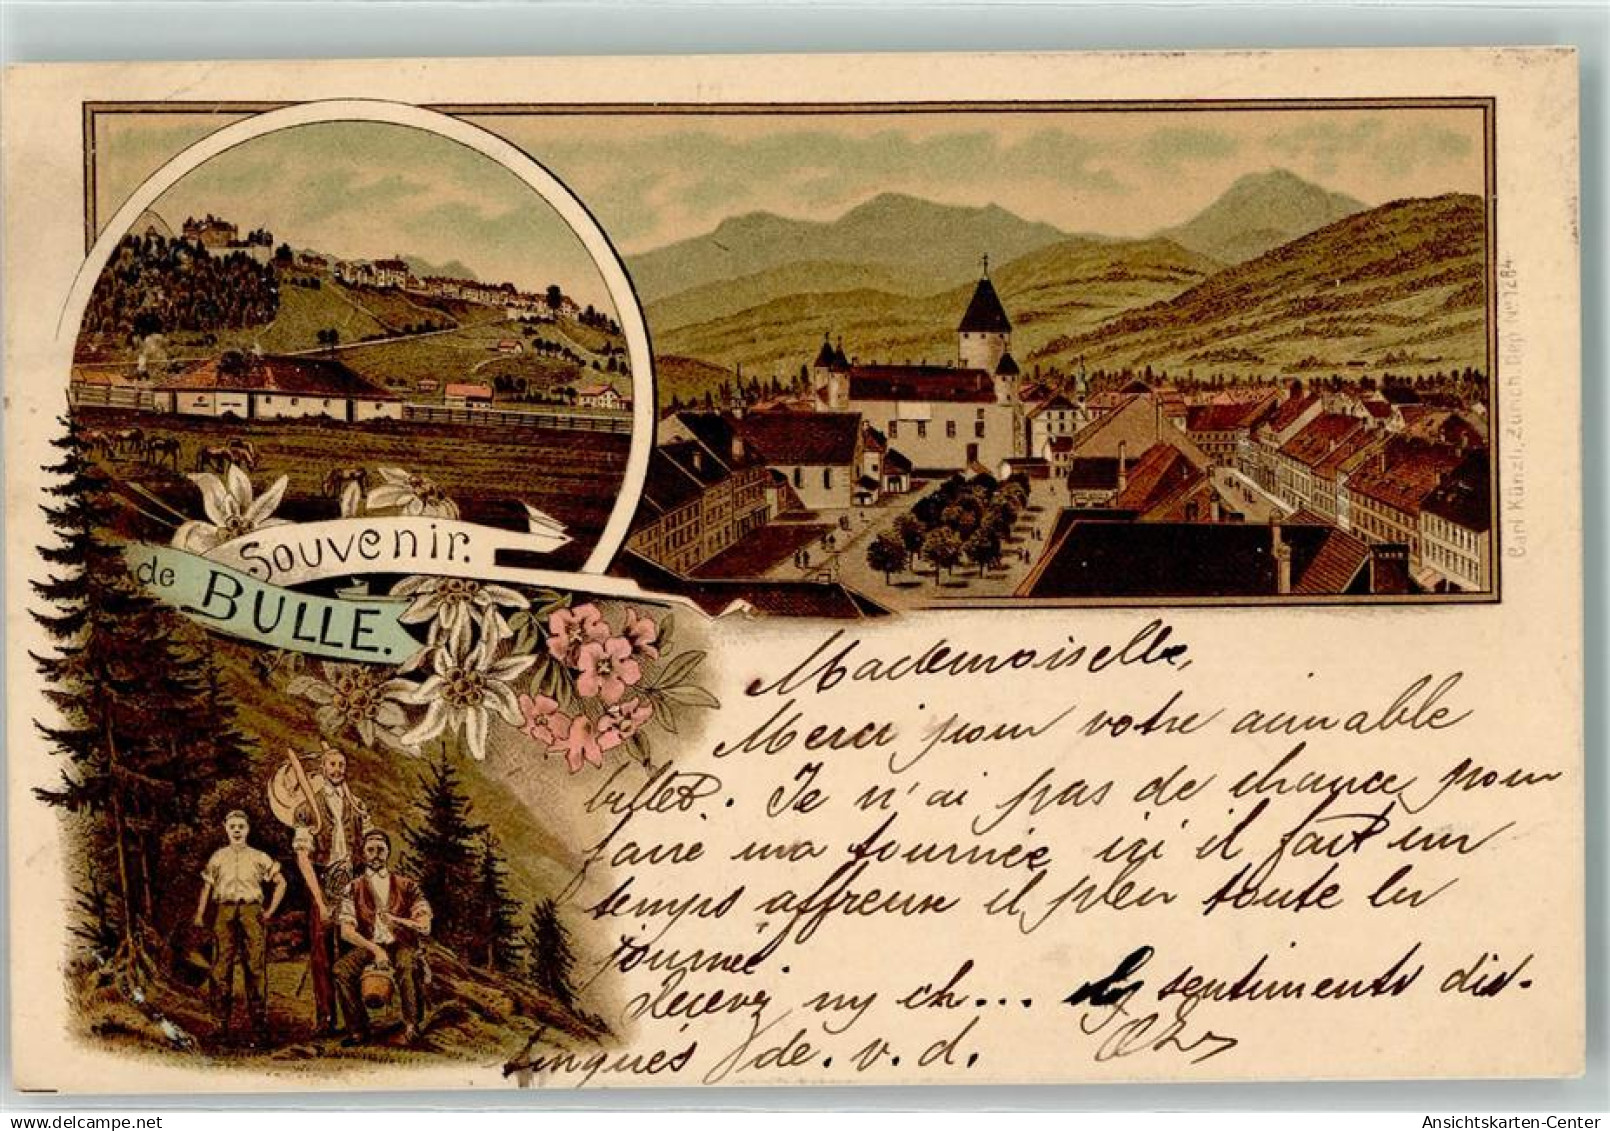 Souvenir.
de BULLE.
Carl Künzli, Zürich. Dep. No 1284.
Mademoiselle,
Merci pour votre aimable
billet. Je n'ai pas de chance pour
faire ma tournée ici il fait un
temps affreux il pleu toute la
journée.
Recevez my ch... les sentiments dis-
tingués de. v. d.
delcampe.net
Ansichtskarten-Center